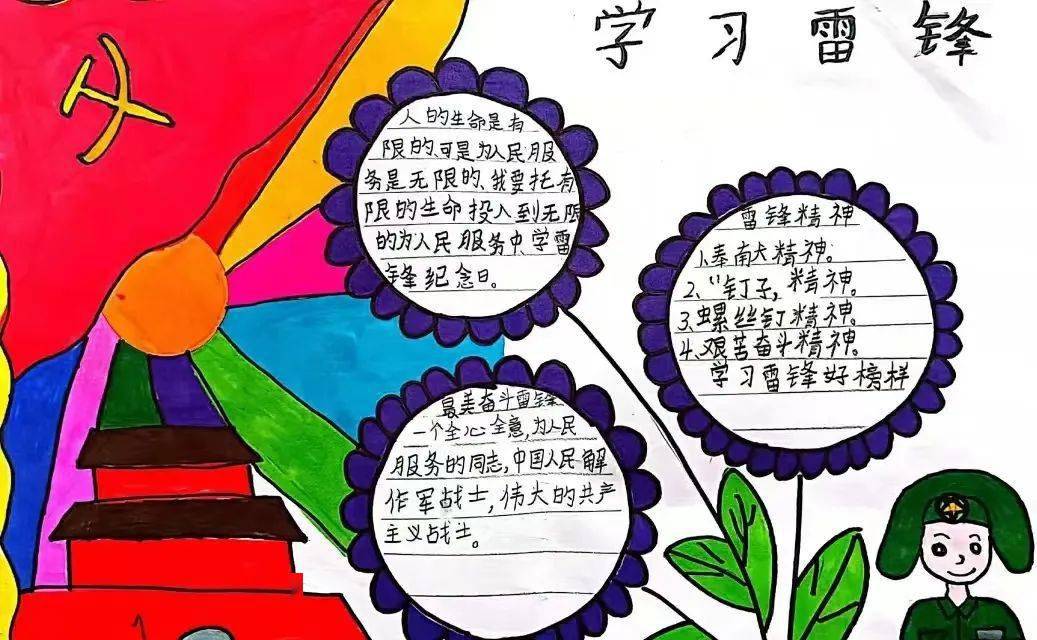 学习雷锋
人的生命是有
限的、可是为人民服
务是无限的、我要托有
限的生命投入到无限
的为人民服务中、学雷
锋纪念日。
雷锋精神
1、奉献精神。
2、“钉子,精神。
3、螺丝钉精神。
4、艰苦奋斗精神。
学习雷锋好榜样
最美奋斗雷锋
一个全心全意,为人民
服务的同志,中国人民解
作军战士,伟大的共产
主义战士。